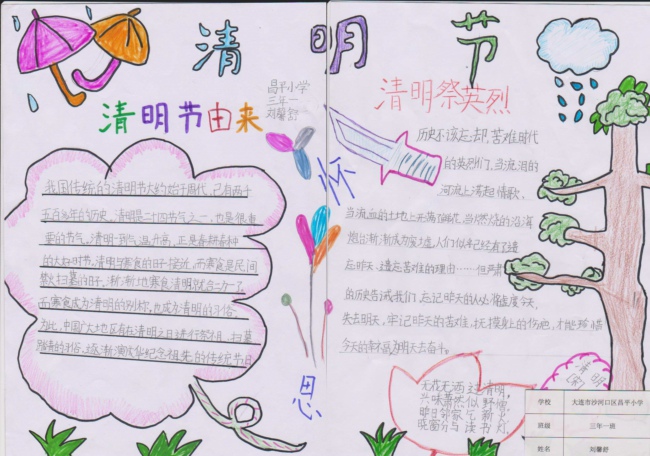 清明节
昌平小学
三年一
刘馨舒
清明节由来
我国传统的清明节大约始于周代，已有两千
五百多年的历史。清明是二十四节气之一，也是很重
要的节气，清明一到气温升高，正是春耕春种
的大好时节，清明与寒食的日子接近，而寒食是民间
禁火扫墓的日子，渐渐地寒食清明就合二为一了，
而寒食成为清明的别称，也成为清明的习俗。
为此，中国广大地区有在清明之日进行祭祖、扫墓、
踏青的习俗，逐渐演成华纪念祖先的传统节日
怀
思
清明祭英烈
历史不该忘却，苦难时代
的英烈们，当流泪的
河流上荡起情歌，
当流血的土地上开满
忘昨天，遗忘苦难的理由……但
的历史告诫我们，忘记昨天的人必将
失去明天，牢记昨天的苦难，抚摸身上的伤疤，才能珍惜
今天的幸福为明天去奋斗。
清明
无花无酒过清明，
兴味萧然似野僧
昨日邻家乞新火
晓窗分与读书灯
学校 大连市沙河口区昌平小学
班级 三年一班
姓名 刘馨舒